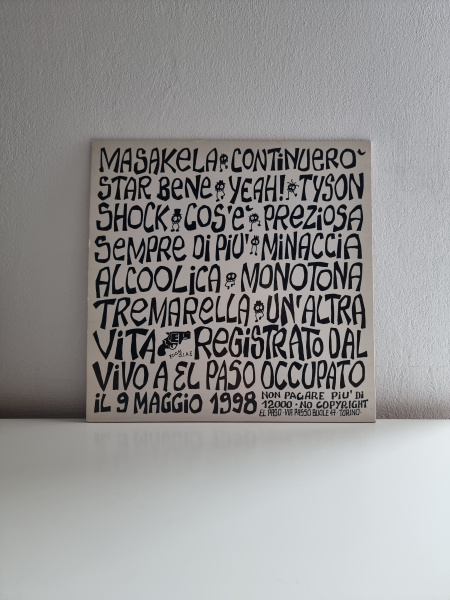 MASAKELA · CONTINUERO`
STAR BENE · YEAH! · TYSON
SHOCK · COS'E` · PREZIOSA
SEMPRE DI PIU' · MINACCIA
ALCOOLICA · MONOTONA
TREMARELLA · UN'ALTRA
VITA REGISTRATO DAL
VIVO A EL PASO OCCUPATO
IL 9 MAGGIO 1998
NON PAGARE PIU' DI
12000 · NO COPYRIGHT
EL PASO · VIA PASSO BUOLE 47 · TORINO